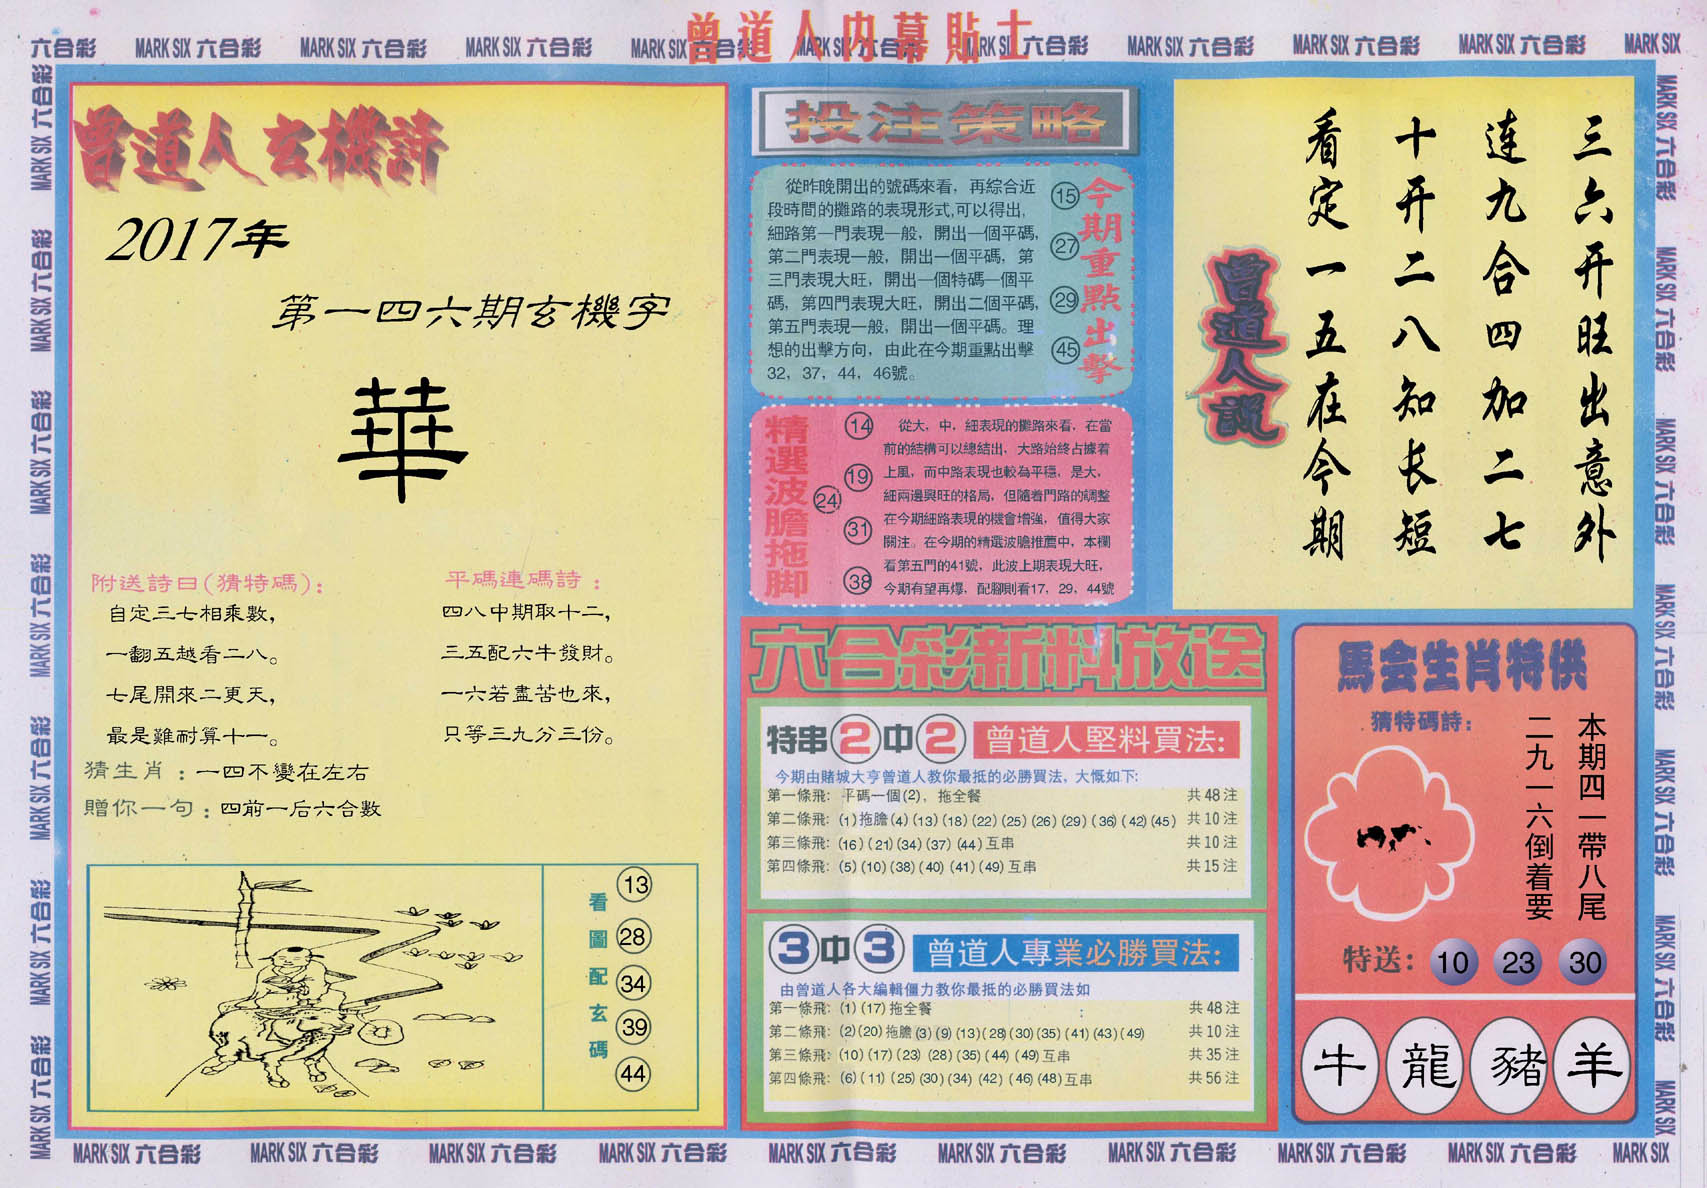 曾道人内幕貼士
六合彩 MARK SIX 六合彩 MARK SIX 六合彩 MARK SIX 六合彩 MARK SIX 六合彩 MARK SIX 六合彩 MARK SIX 六合彩 MARK SIX 六合彩 MARK SIX 六合彩 MARK SIX 六合彩 MARK SIX
曾道人玄機詩
2017年
第一四六期玄機字
華
附送詩曰(猜特碼):
自定三七相乘數,
一翻五越看二八。
七尾開來二更天,
最是難耐算十一。
平碼連碼詩:
四八中期取十二,
三五配六牛發財。
一六若盡苦也來,
只等三九分三份。
猜生肖:一四不變在左右
贈你一句:四前一后六合數
看圖配玄碼
13
28
34
39
44
投注策略
從昨晚開出的號碼來看，再綜合近
段時間的攤路的表現形式,可以得出,
細路第一門表現一般，開出一個平碼,
第二門表現一般，開出一個平碼，第
三門表現大旺，開出一個特碼一個平
碼，第四門表現大旺，開出二個平碼,
第五門表現一般，開出一個平碼。理
想的出擊方向，由此在今期重點出擊
32，37，44，46號。
今期重點出擊
15
27
29
45
精選波膽拖脚
14
19
24
31
38
從大，中，細表現的攤路來看，在當
前的結構可以總結出，大路始終占據着
上風，而中路表現也較為平穩，是大，
細兩邊興旺的格局，但隨着門路的調整
在今期細路表現的機會增強，值得大家
關注。在今期的精選波膽推薦中，本欄
看第五門的41號，此波上期表現大旺，
今期有望再爆，配腳則看17，29，44號
六合彩新料放送
特串2中2 曾道人堅料買法:
今期由賭城大亨曾道人教你最抵的必勝買法，大慨如下:
第一條飛: 平碼一個(2)，拖全餐 共48注
第二條飛: (1)拖膽(4)(13)(18)(22)(25)(26)(29)(36)(42)(45) 共10注
第三條飛: (16)(21)(34)(37)(44)互串 共10注
第四條飛: (5)(10)(38)(40)(41)(49)互串 共15注
3中3 曾道人專業必勝買法:
由曾道人各大編輯僵力教你最抵的必勝買法如
第一條飛: (1)(17)拖全餐 共48注
第二條飛: (2)(20)拖膽(3)(9)(13)(28)(30)(35)(41)(43)(49) 共10注
第三條飛: (10)(17)(23)(28)(35)(44)(49)互串 共35注
第四條飛: (6)(11)(25)(30)(34)(42)(46)(48)互串 共56注
三六开旺出意外
连九合四加二七
十开二八知长短
看定一五在今期
曾道人說
馬会生肖特供
猜特碼詩:
本期四一帶八尾
二九一六倒着要
特送: 10 23 30
牛 龍 豬 羊
MARK SIX 六合彩 MARK SIX 六合彩 MARK SIX 六合彩 MARK SIX 六合彩 MARK SIX 六合彩 MARK SIX 六合彩 MARK SIX 六合彩 MARK SIX 六合彩 MARK SIX 六合彩 MARK SIX